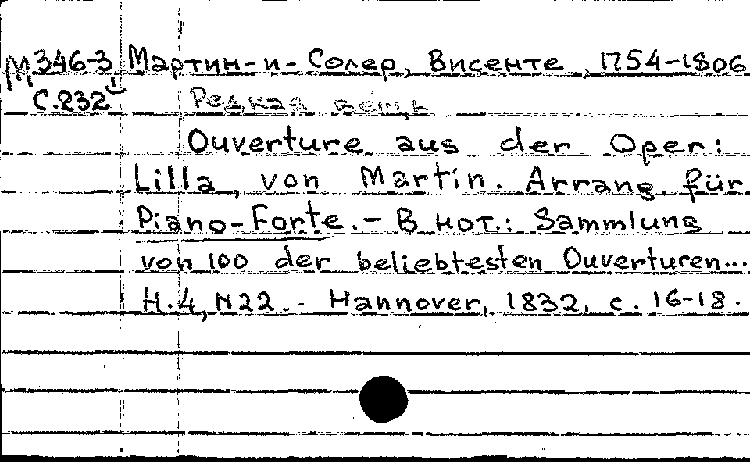 М 346-3 Мартин-и-Солер, Висенте, 1754-1806
С.232 Редкая вещь
Ouverture aus der Oper:
Lilla, von Martin. Arrang. für
Piano-Forte. - В нот.: Sammlung
von 100 der beliebtesten Ouverturen...
H.4, N22. - Hannover, 1832, с. 16-18.